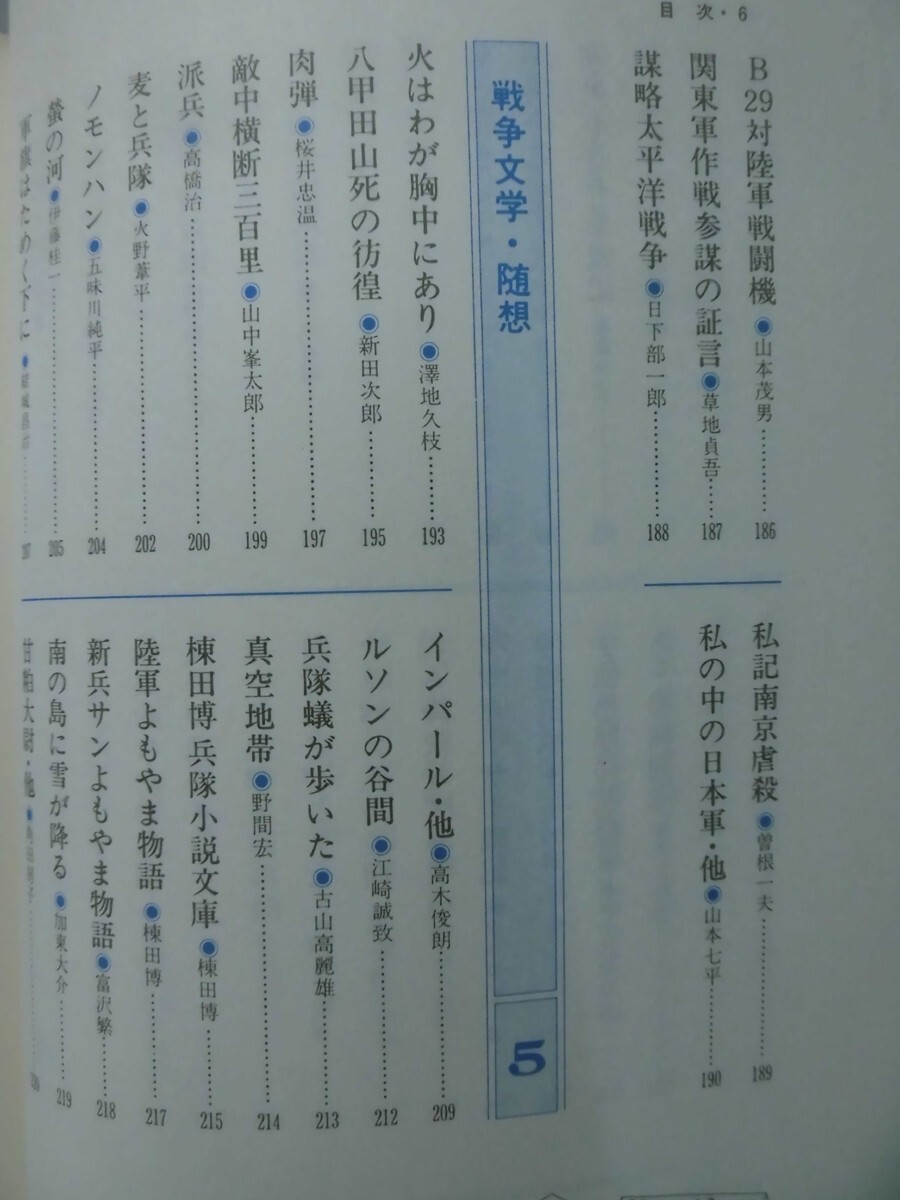 目 次・6
B29対陸軍戦闘機●山本茂男…………186
関東軍作戦参謀の証言●草地貞吾……187
謀略太平洋戦争●日下部一郎…………188
私記南京虐殺●曽根一夫…………189
私の中の日本軍・他●山本七平…………190
戦争文学・随想
5
火はわが胸中にあり●澤地久枝…………193
八甲田山死の彷徨●新田次郎…………195
肉弾●桜井忠温…………197
敵中横断三百里●山中峯太郎…………199
派兵●高橋治…………200
麦と兵隊●火野葦平…………202
ノモンハン●五味川純平…………204
螢の河●伊藤桂一…………205
軍旗はためく下に●
インパール・他●高木俊朗…………209
ルソンの谷間●江崎誠致…………212
兵隊蟻が歩いた●古山高麗雄…………213
真空地帯●野間宏…………214
棟田博兵隊小説文庫●棟田博…………215
陸軍よもやま物語●棟田博…………217
新兵サンよもやま物語●富沢繁…………218
南の島に雪が降る●加東大介…………219
甘粕大尉・他●